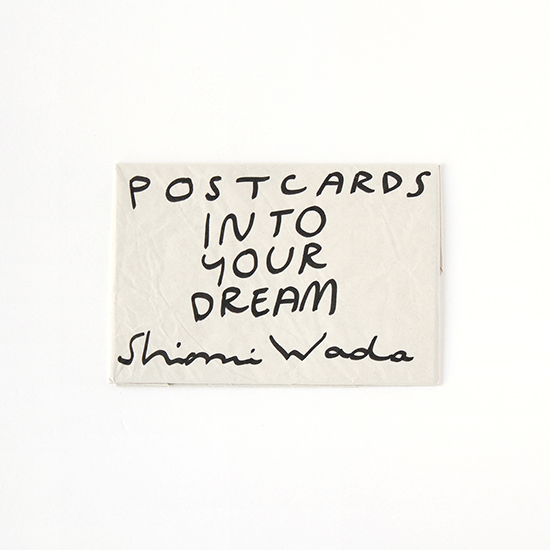 POSTCARDS
INTO
YOUR
DREAM
Shiomi Wada